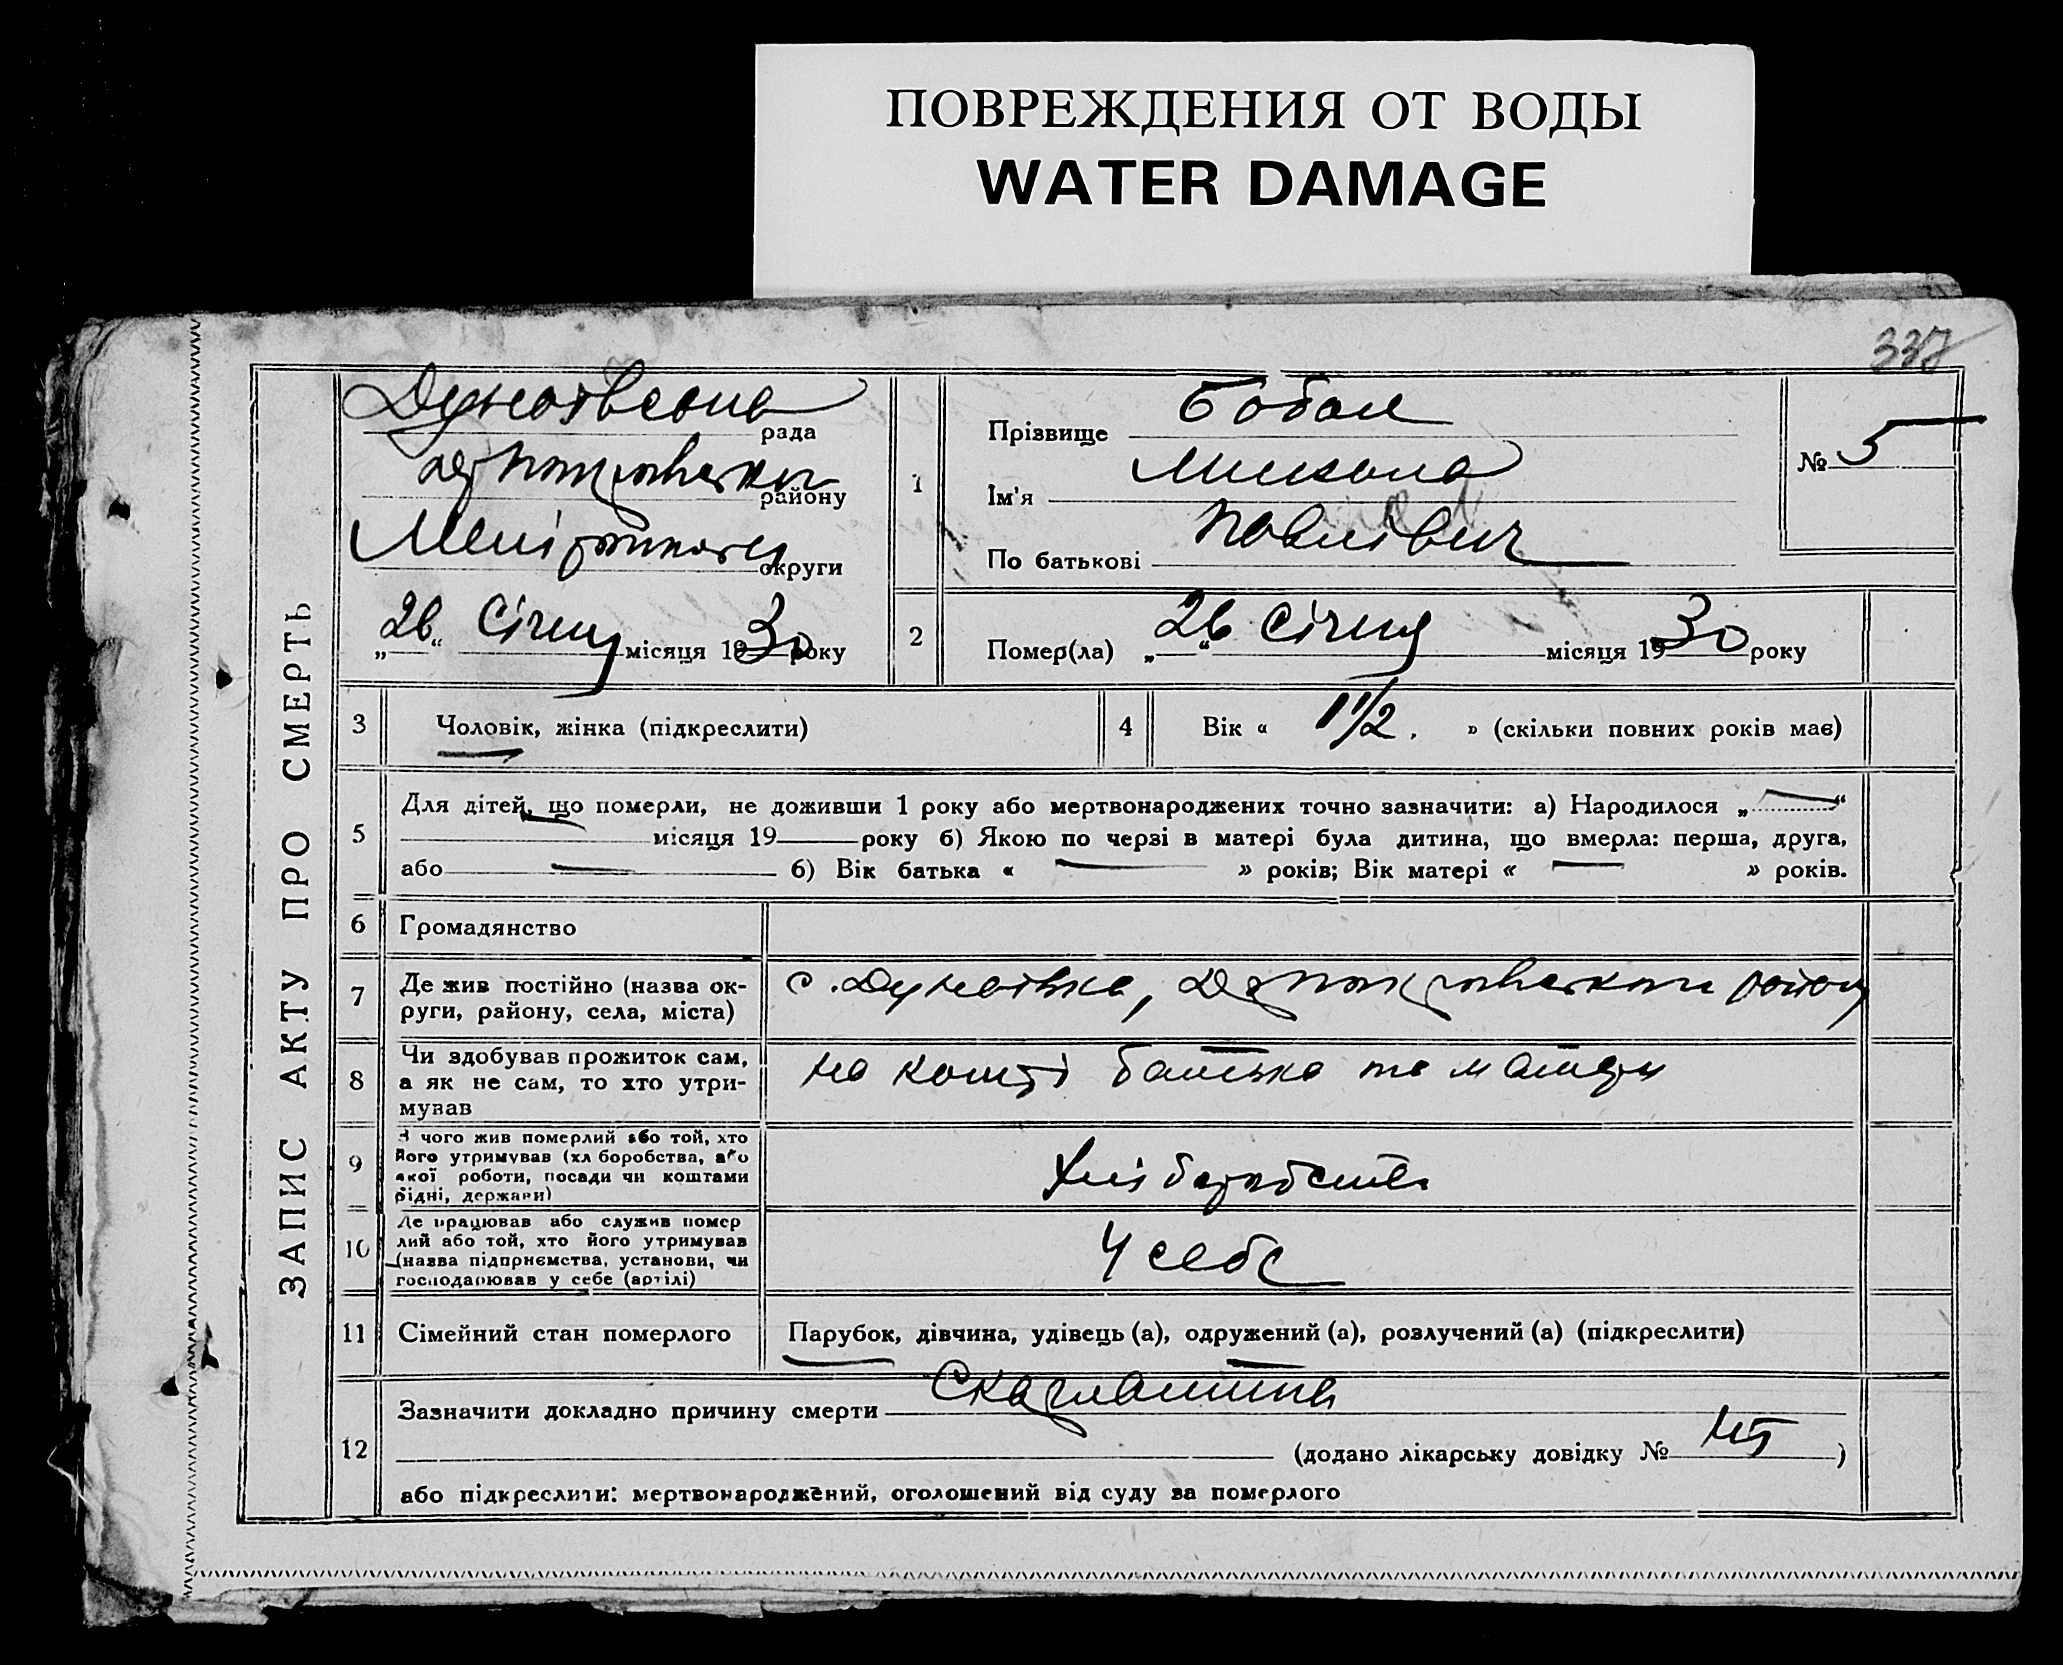 ПОВРЕЖДЕНИЯ ОТ ВОДЫ
WATER DAMAGE
337
ЗАПИС АКТУ ПРО СМЕРТЬ
Дунаївська рада
району
Меліт округи
„26“ Січня місяця 1930 року
1
Прізвище Бобал
Ім'я Микола
По батькові Павлович
№ 5
2
Помер(ла) „26“ Січня місяця 1930 року
3 Чоловік, жінка (підкреслити)
4 Вік « 1 1/2. » (скільки повних років має)
5 Для дітей, що померли, не доживши 1 року або мертвонароджених точно зазначити: а) Народилося „—“
місяця 19— року б) Якою по черзі в матері була дитина, що вмерла: перша, друга,
або — б) Вік батька « — » років; Вік матері « — » років.
6 Громадянство
7 Де жив постійно (назва ок-
руги, району, села, міста)
с. Дунаївка, району
8 Чи здобував прожиток сам,
а як не сам, то хто утри-
мував
на кошті батька та матери
9 З чого жив померлий або той, хто
його утримував (хліборобства, або
якої роботи, посади чи коштами
рідні, держави)
Хліборобства
10 Де працював або служив помер
лий або той, хто його утримував
(назва підприємства, установи, чи
господарював у себе (артілі)
У себе
11 Сімейний стан померлого
Парубок, дівчина, удівець (а), одружений (а), розлучений (а) (підкреслити)
12 Зазначити докладно причину смерти Скарлатина
(додано лікарську довідку № )
або підкреслити: мертвонароджений, оголошений від суду за померлого